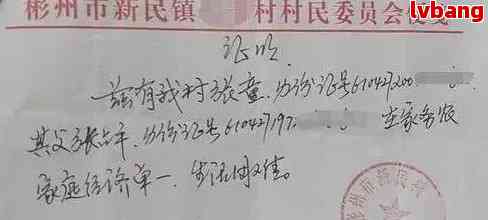 彬州市新民镇 村村民委员会便笺
lvbang
证明
兹有我村张童，身份证号610427200
其父张占年，身份证号610427197 在家务农
家庭经济单一，生活困难。
彬州市新民